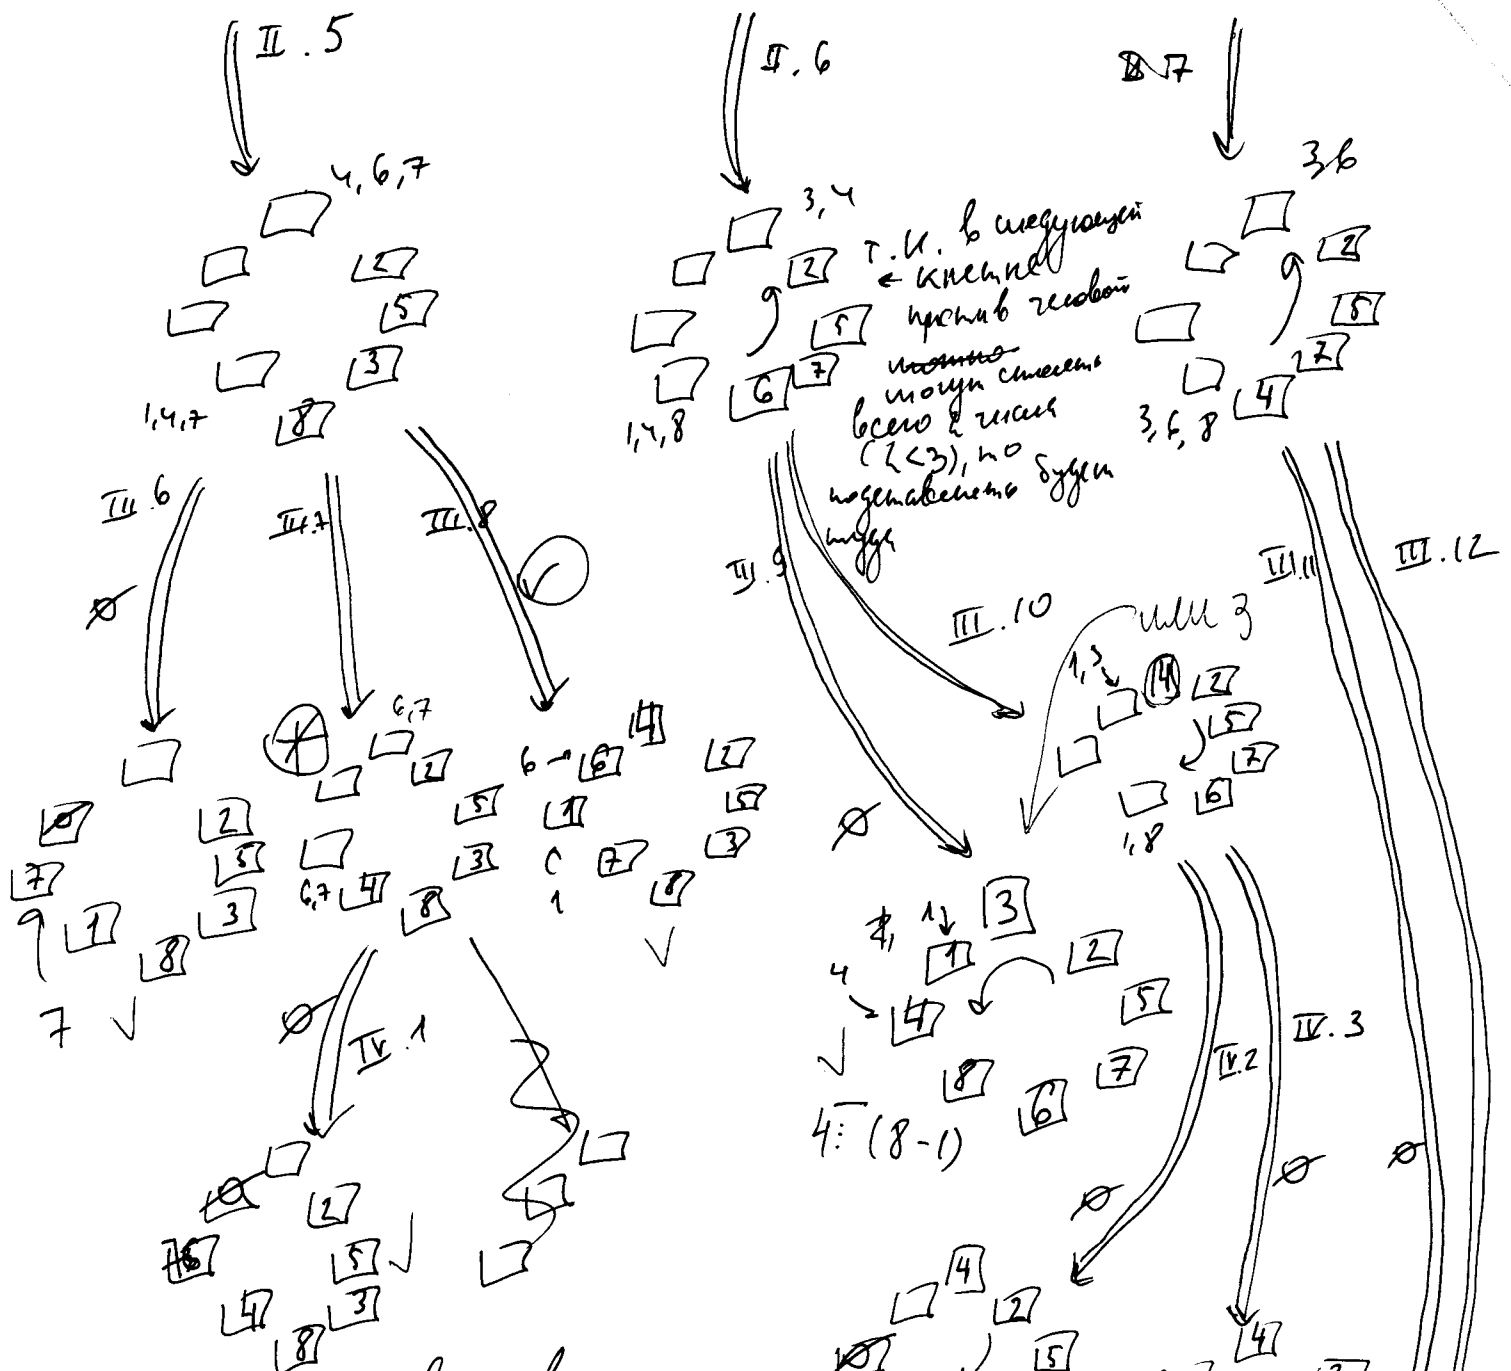 II.5
II.6
7
4,6,7
2
5
3
8
1,4,7
3,4
2
5
7
6
1,4,8
т.к. в следующей
← клетке
против часовой
могут стоять
всего 2 числа
(2<3), то
подставлять будем
туда
3,6
2
5
7
4
3,6,8
III.6
III.7
III.8
III.9
III.10
III.11
III.12
∅
7
2
5
3
8
1
7
6,7
2
5
3
8
4
6,7
6→6
4
2
5
3
8
7
1
1
или 3
1,3
4
2
5
7
6
1,8
∅
3
1
1
2
5
7
6
8
4
4
4⋮(8-1)
∅
IV.1
IV.2
IV.3
∅
∅
∅
2
5
3
8
4
4
2
5
4